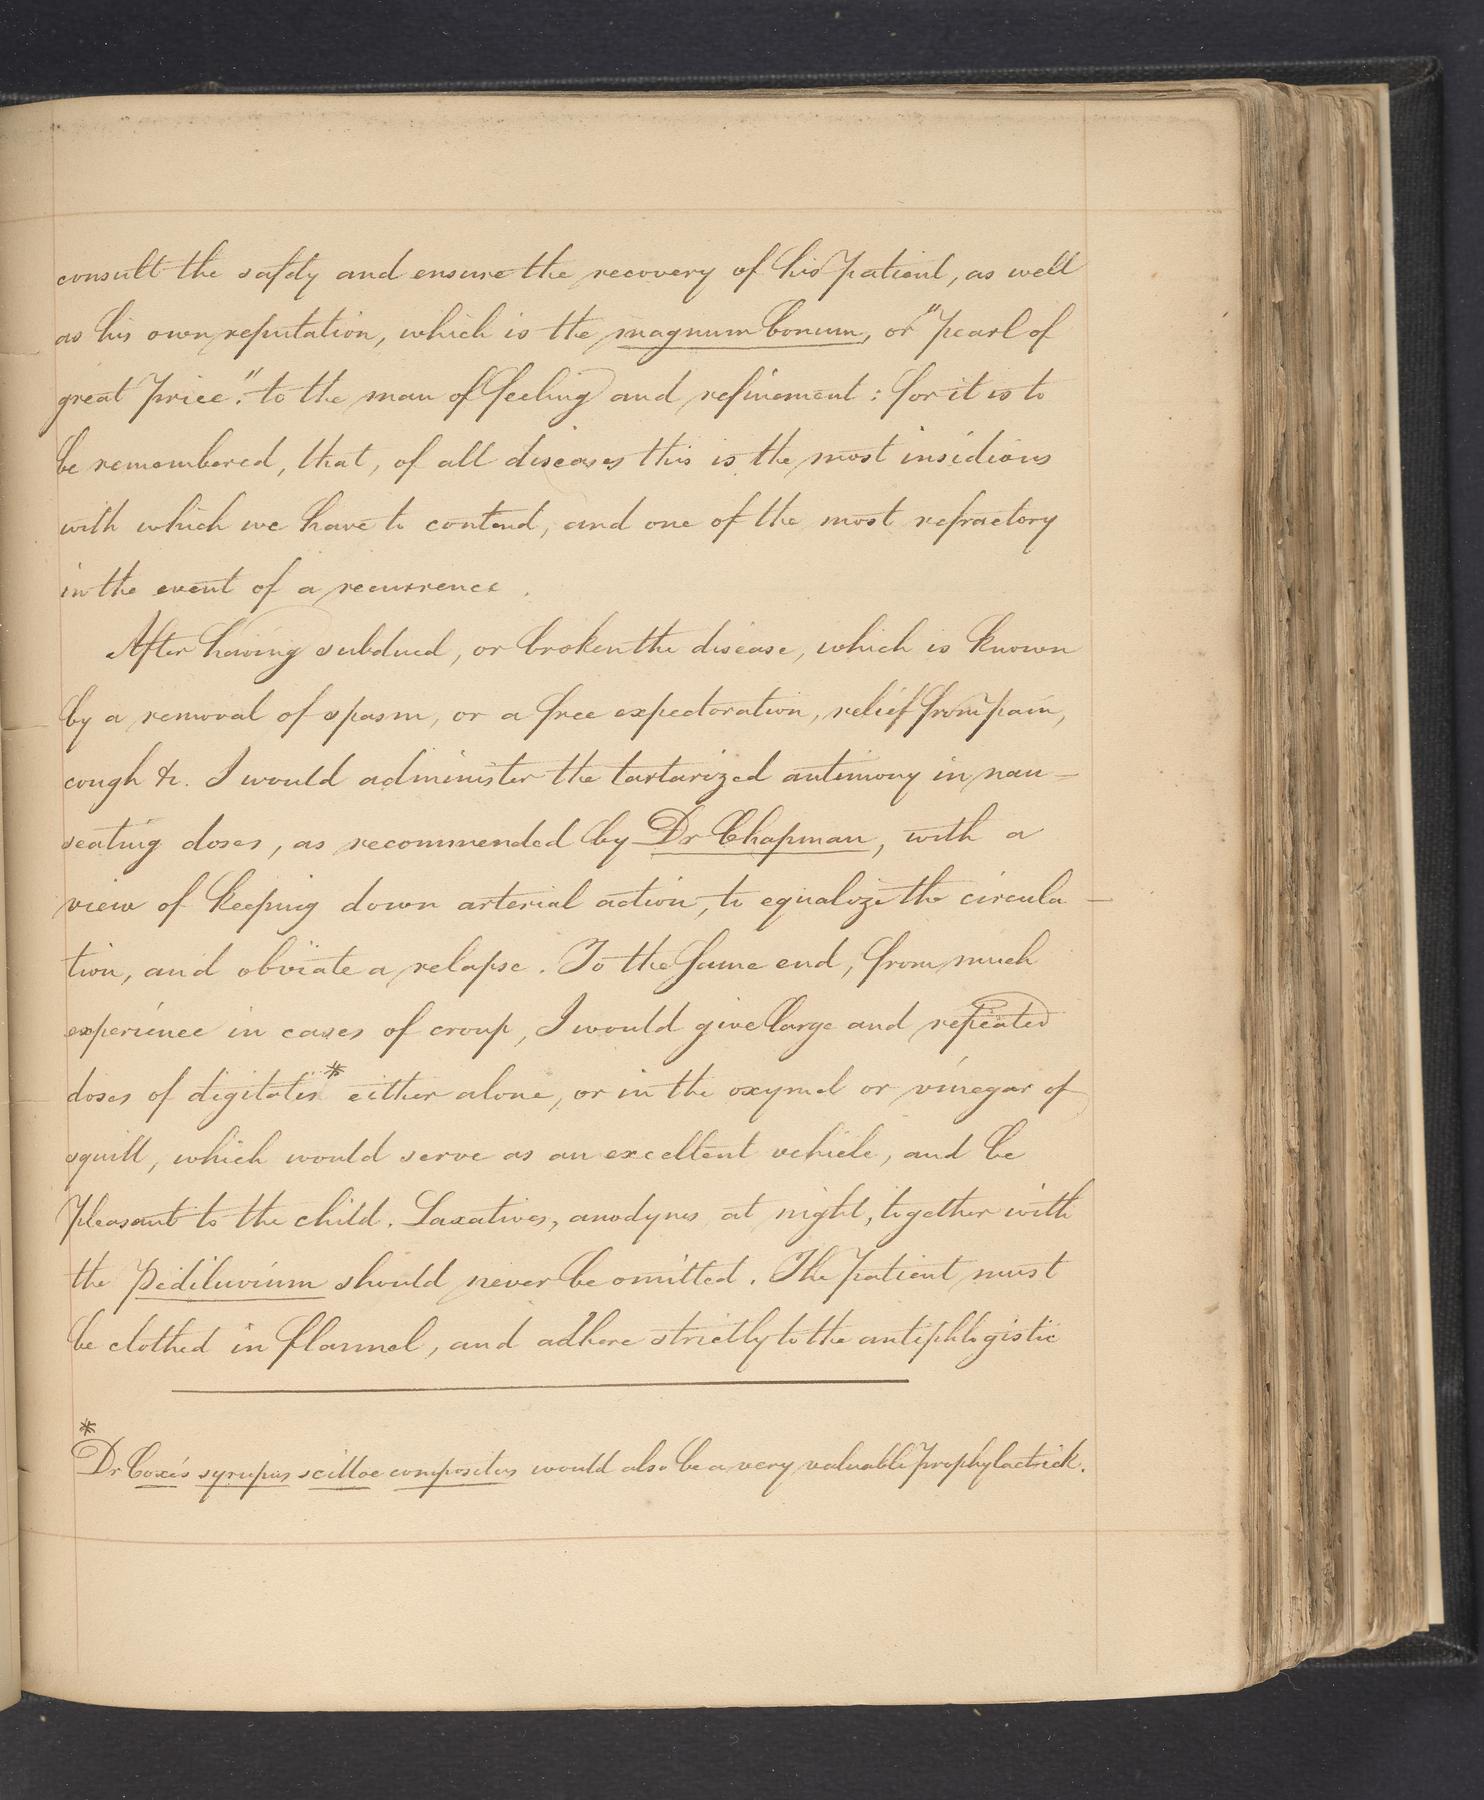 consult the safety and ensure the recovery of his patient, as well
as his own reputation, which is the magnum bonum, or "pearl of
great price". to the man of feeling and refinement : for it is to
be remembered, that, of all diseases this is the most insidious
with which we have to contend, and one of the most refractory
in the event of a recurrence.
After having subdued, or broken the disease, which is known
by a removal of spasm, or a free expectoration, relief from pain,
cough &c. I would administer the tartarized antimony in nau-
seating doses, as recommended by Dr Chapman, with a
view of keeping down arterial action, to equalize the circula-
tion, and obviate a relapse. To the same end, from much
experience in cases of croup, I would give large and repeated
doses of digitalis* either alone, or in the oxymel or vinegar of
squill, which would serve as an excellent vehicle, and be
pleasant to the child. Laxatives, anodynes at night, together with
the pediluvium should never be omitted. The patient must
be clothed in flannel, and adhere strictly to the antiphlogistic
*
Dr Coxe's syrupus scillae compositus would also be a very valuable prophylactrick.